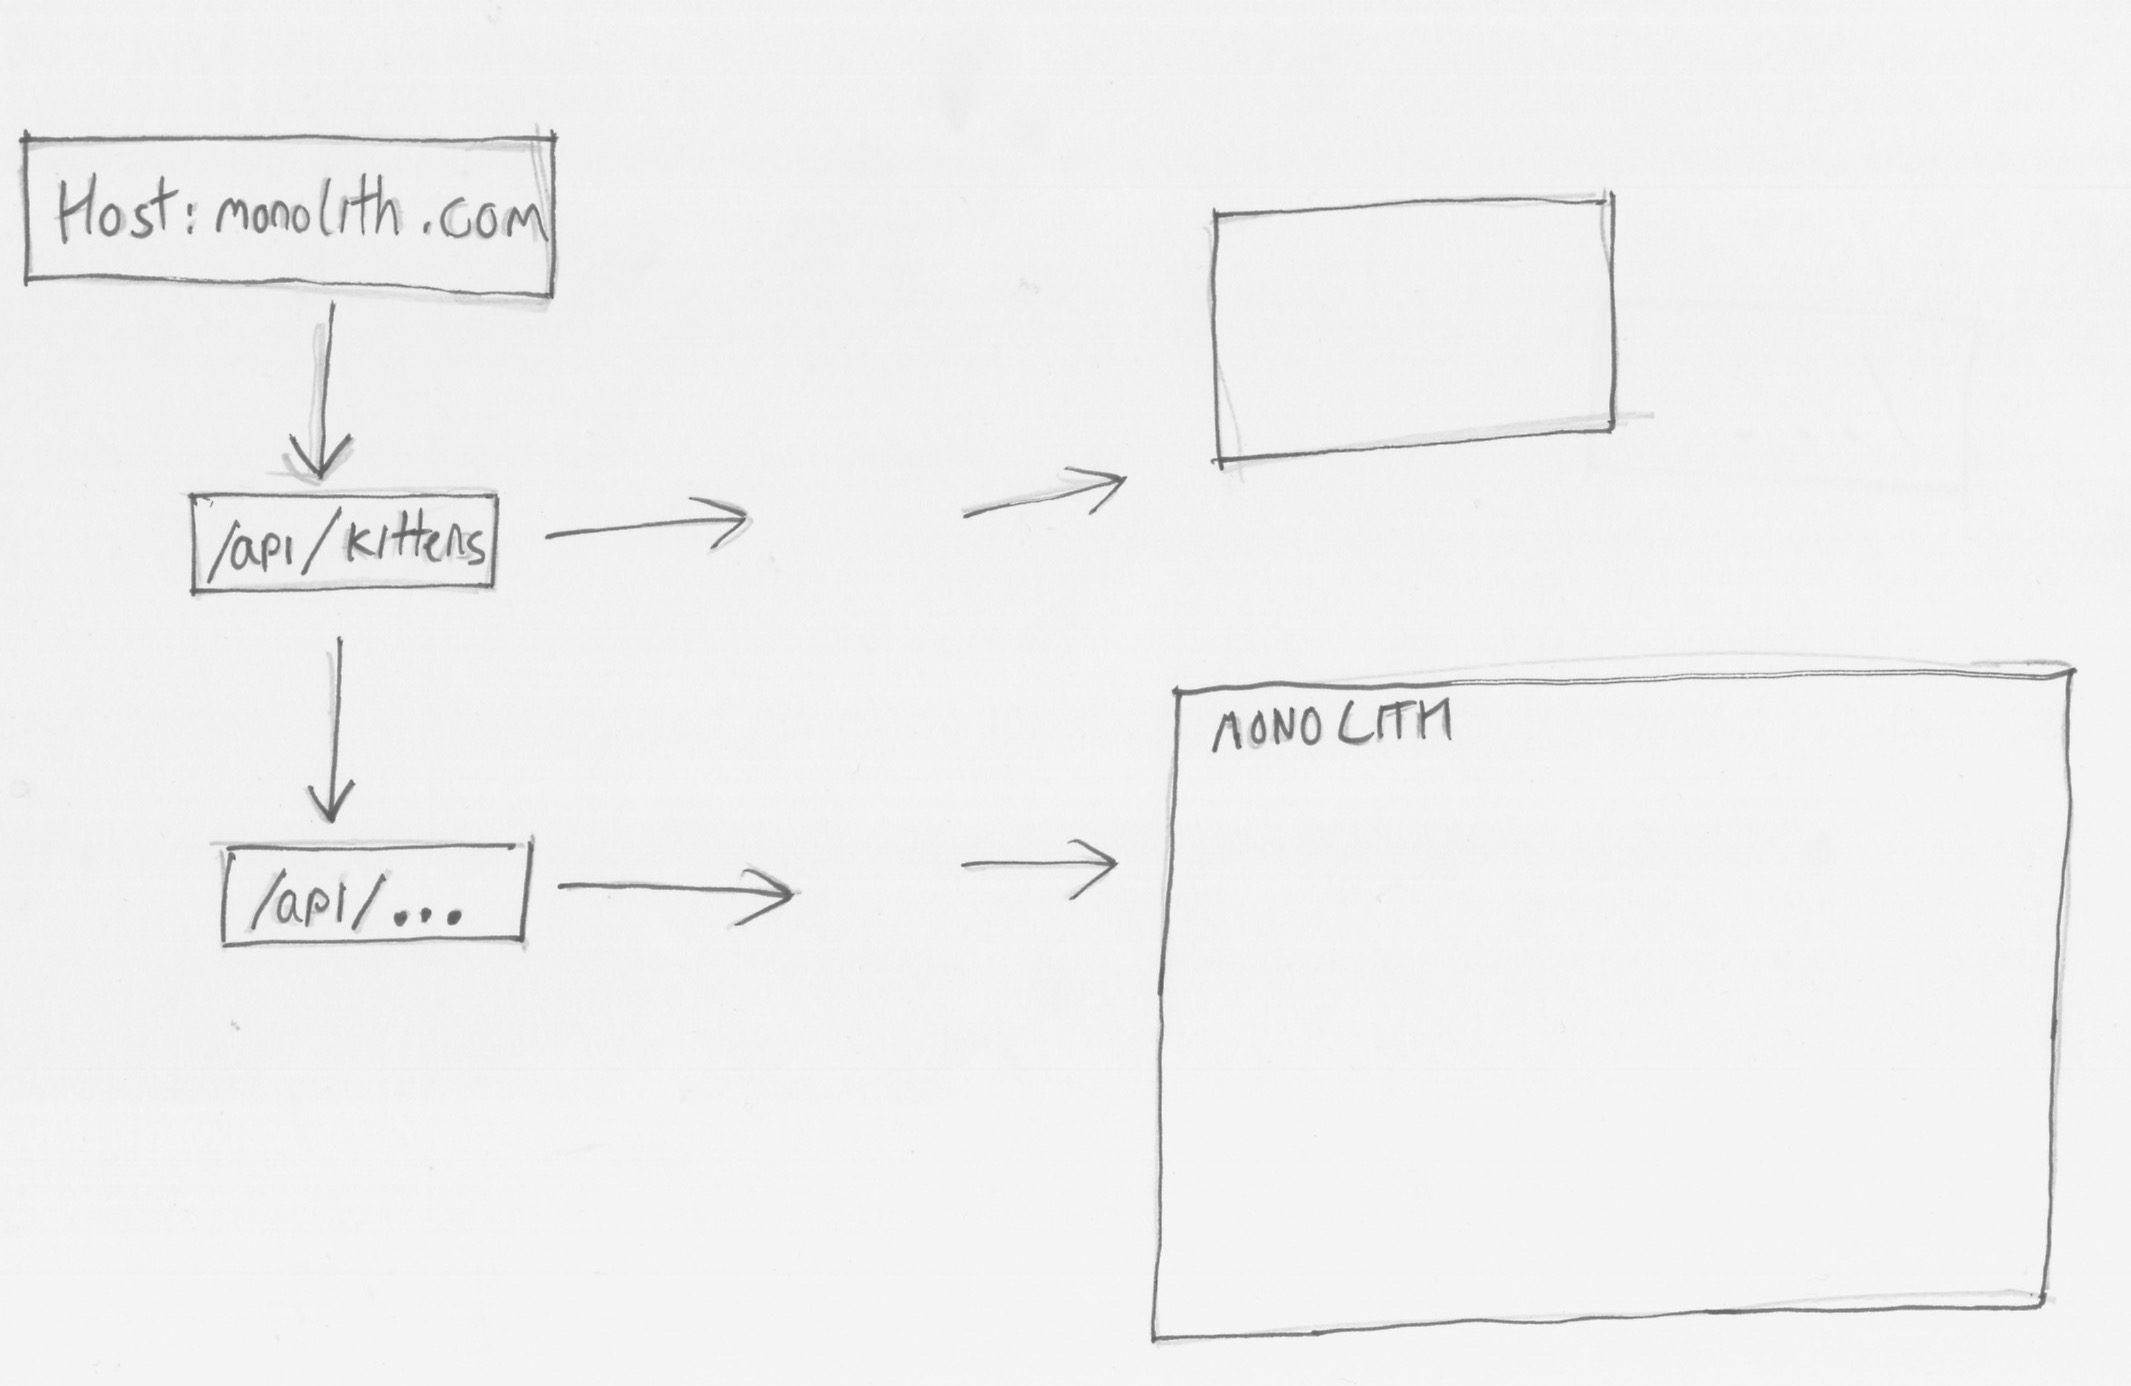 Host: monolith.com
/api/kittens
/api/...
MONOLITH